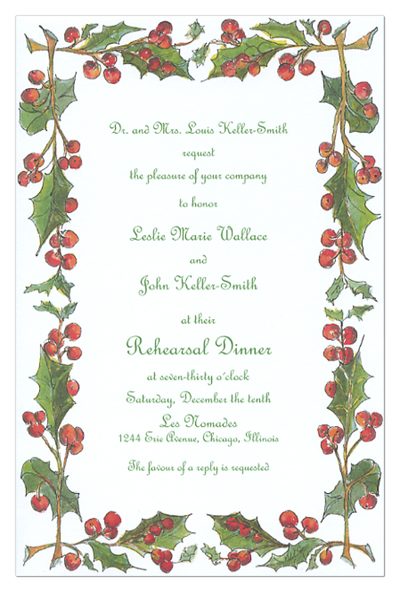 Dr. and Mrs. Louis Keller-Smith
request
the pleasure of your company
to honor
Leslie Marie Wallace
and
John Keller-Smith
at their
Rehearsal Dinner
at seven-thirty o'clock
Saturday, December the tenth
Les Nomades
1244 Erie Avenue, Chicago, Illinois
The favour of a reply is requested